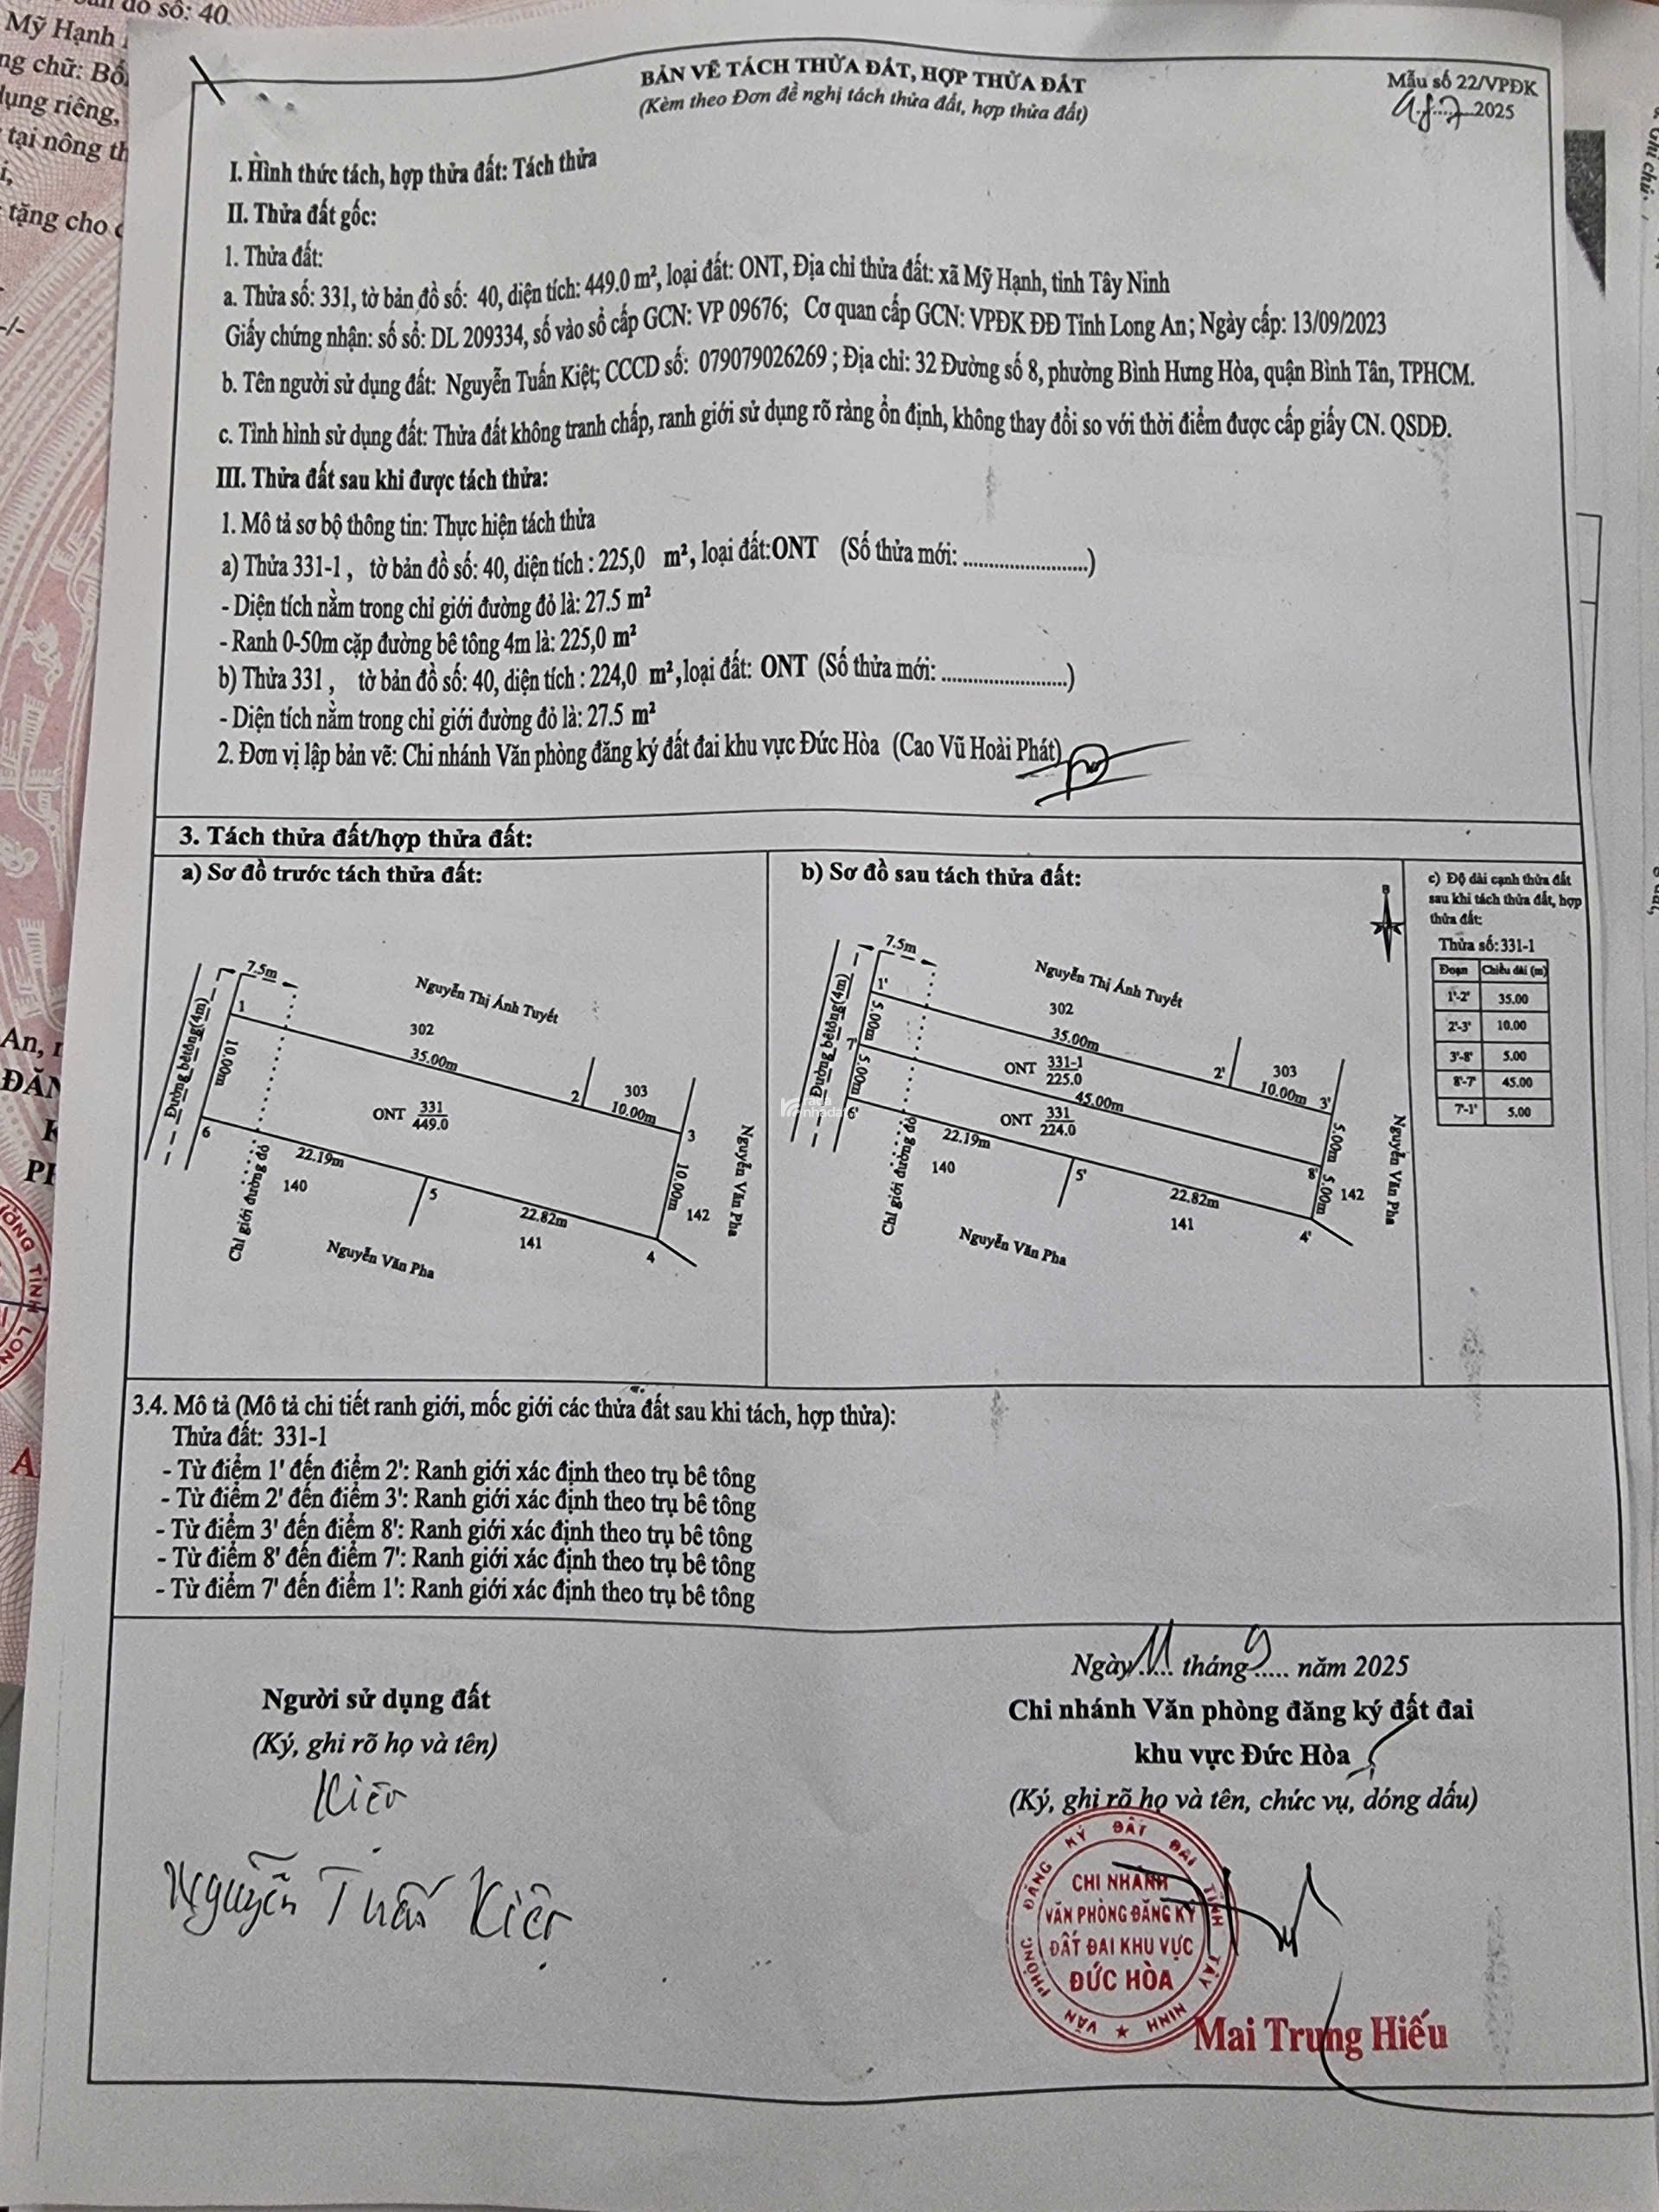 BẢN VẼ TÁCH THỬA ĐẤT, HỢP THỬA ĐẤT
(Kèm theo Đơn đề nghị tách thửa đất, hợp thửa đất)
Mẫu số 22/VPĐK
2025
I. Hình thức tách, hợp thửa đất: Tách thửa
II. Thửa đất gốc:
1. Thửa đất:
a. Thửa số: 331, tờ bản đồ số: 40, diện tích: 449.0 m², loại đất: ONT, Địa chỉ thửa đất: xã Mỹ Hạnh, tỉnh Tây Ninh
Giấy chứng nhận: số sổ: DL 209334, số vào sổ cấp GCN: VP 09676; Cơ quan cấp GCN: VPĐK ĐĐ Tỉnh Long An; Ngày cấp: 13/09/2023
b. Tên người sử dụng đất: Nguyễn Tuấn Kiệt; CCCD số: 079079026269 ; Địa chỉ: 32 Đường số 8, phường Bình Hưng Hòa, quận Bình Tân, TPHCM.
c. Tình hình sử dụng đất: Thửa đất không tranh chấp, ranh giới sử dụng rõ ràng ổn định, không thay đổi so với thời điểm được cấp giấy CN. QSDĐ.
III. Thửa đất sau khi được tách thửa:
1. Mô tả sơ bộ thông tin: Thực hiện tách thửa
a) Thửa 331-1 , tờ bản đồ số: 40, diện tích : 225,0 m², loại đất:ONT (Số thửa mới: ........................)
- Diện tích nằm trong chỉ giới đường đỏ là: 27.5 m²
- Ranh 0-50m cặp đường bê tông 4m là: 225,0 m²
b) Thửa 331 , tờ bản đồ số: 40, diện tích : 224,0 m²,loại đất: ONT (Số thửa mới: ........................)
- Diện tích nằm trong chỉ giới đường đỏ là: 27.5 m²
2. Đơn vị lập bản vẽ: Chi nhánh Văn phòng đăng ký đất đai khu vực Đức Hòa (Cao Vũ Hoài Phát)
3. Tách thửa đất/hợp thửa đất:
a) Sơ đồ trước tách thửa đất:
7.5m
Nguyễn Thị Ánh Tuyết
Đường bêtông(4m)
1
302
35.00m
10.00m
2
303
10.00m
3
ONT 331
449.0
6
22.19m
140
Chỉ giới đường đỏ
5
22.82m
141
4
10.00m
142
Nguyễn Văn Pha
Nguyễn Văn Pha
b) Sơ đồ sau tách thửa đất:
B
7.5m
Nguyễn Thị Ánh Tuyết
Đường bêtông(4m)
1'
302
35.00m
5.00m
7'
2'
303
10.00m
3'
ONT 331-1
225.0
45.00m
5.00m
5.00m
ONT 331
224.0
6'
22.19m
140
Chỉ giới đường đỏ
5'
22.82m
141
8'
5.00m
142
4'
Nguyễn Văn Pha
Nguyễn Văn Pha
c) Độ dài cạnh thửa đất
sau khi tách thửa đất, hợp
thửa đất:
Thửa số: 331-1
Đoạn Chiều dài (m)
1'-2' 35.00
2'-3' 10.00
3'-8' 5.00
8'-7' 45.00
7'-1' 5.00
3.4. Mô tả (Mô tả chi tiết ranh giới, mốc giới các thửa đất sau khi tách, hợp thửa):
Thửa đất: 331-1
- Từ điểm 1' đến điểm 2': Ranh giới xác định theo trụ bê tông
- Từ điểm 2' đến điểm 3': Ranh giới xác định theo trụ bê tông
- Từ điểm 3' đến điểm 8': Ranh giới xác định theo trụ bê tông
- Từ điểm 8' đến điểm 7': Ranh giới xác định theo trụ bê tông
- Từ điểm 7' đến điểm 1': Ranh giới xác định theo trụ bê tông
Ngày 11 tháng 9 năm 2025
Người sử dụng đất
(Ký, ghi rõ họ và tên)
Kiệt
Nguyễn Tuấn Kiệt
Chi nhánh Văn phòng đăng ký đất đai
khu vực Đức Hòa
(Ký, ghi rõ họ và tên, chức vụ, dóng dấu)
VĂN PHÒNG ĐĂNG KÝ ĐẤT ĐAI TỈNH TÂY NINH
CHI NHÁNH
VĂN PHÒNG ĐĂNG KÝ
ĐẤT ĐAI KHU VỰC
ĐỨC HÒA
Mai Trung Hiếu